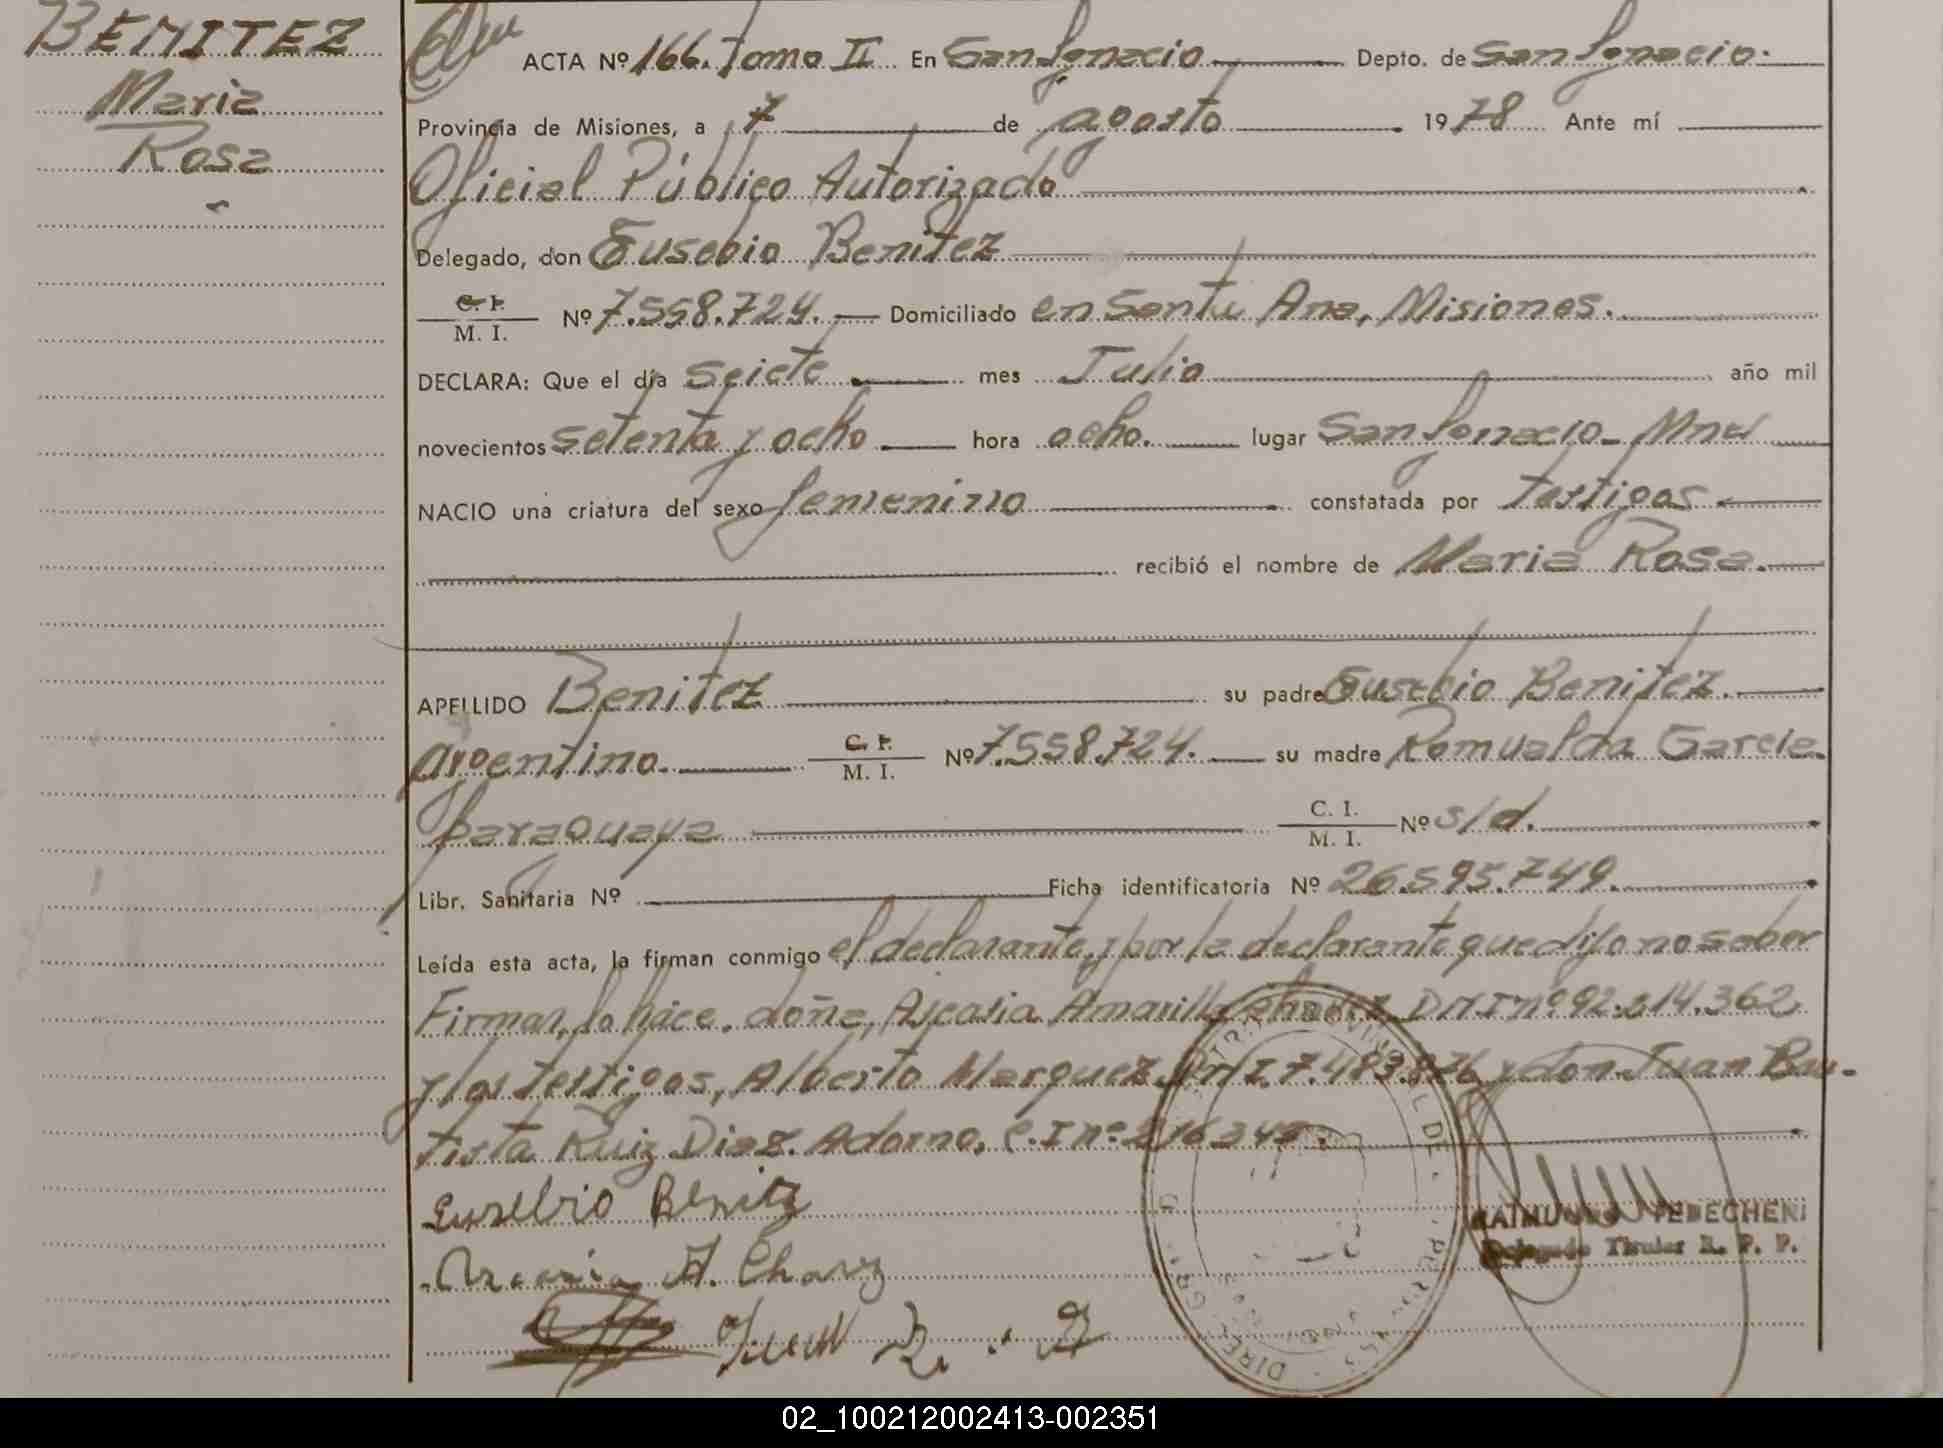 BENITEZ
Maria
Rosa
ACTA Nº 166. Tomo II En San Ignacio Depto. de San Ignacio.
Provincia de Misiones, a 7 de agosto 1978 Ante mí
Oficial Público Autorizado
Delegado, don Eusebio Benitez
C. I.
M. I. Nº 7.558.724. Domiciliado en Santa Ana, Misiones.
DECLARA: Que el día seiete mes Julio año mil
novecientos setenta y ocho hora ocho. lugar San Ignacio - Mnes
NACIO una criatura del sexo femenino constatada por testigos
recibió el nombre de Maria Rosa.
APELLIDO Benitez su padre Eusebio Benitez.
argentino. C. I.
M. I. Nº 7.558.724. su madre Romualda Garcia.
paraguaya C. I.
M. I. Nº s/d.
Libr. Sanitaria Nº Ficha identificatoria Nº 26.595.749.
Leída esta acta, la firman conmigo el declarante, y por la declarante que dijo no saber
Firmar, lo háce. doña, Amarilla DNI nº 92.214.362
y los testigos, Alberto Marquez DNI. 7.483.876 y don Juan Bau-
tista Ruiz Diaz. Adorno, C.I nº
Eusebio Benitz
A. Chavz
RAIMUNDO
Delegado Titular R. P. P.
02_100212002413-002351